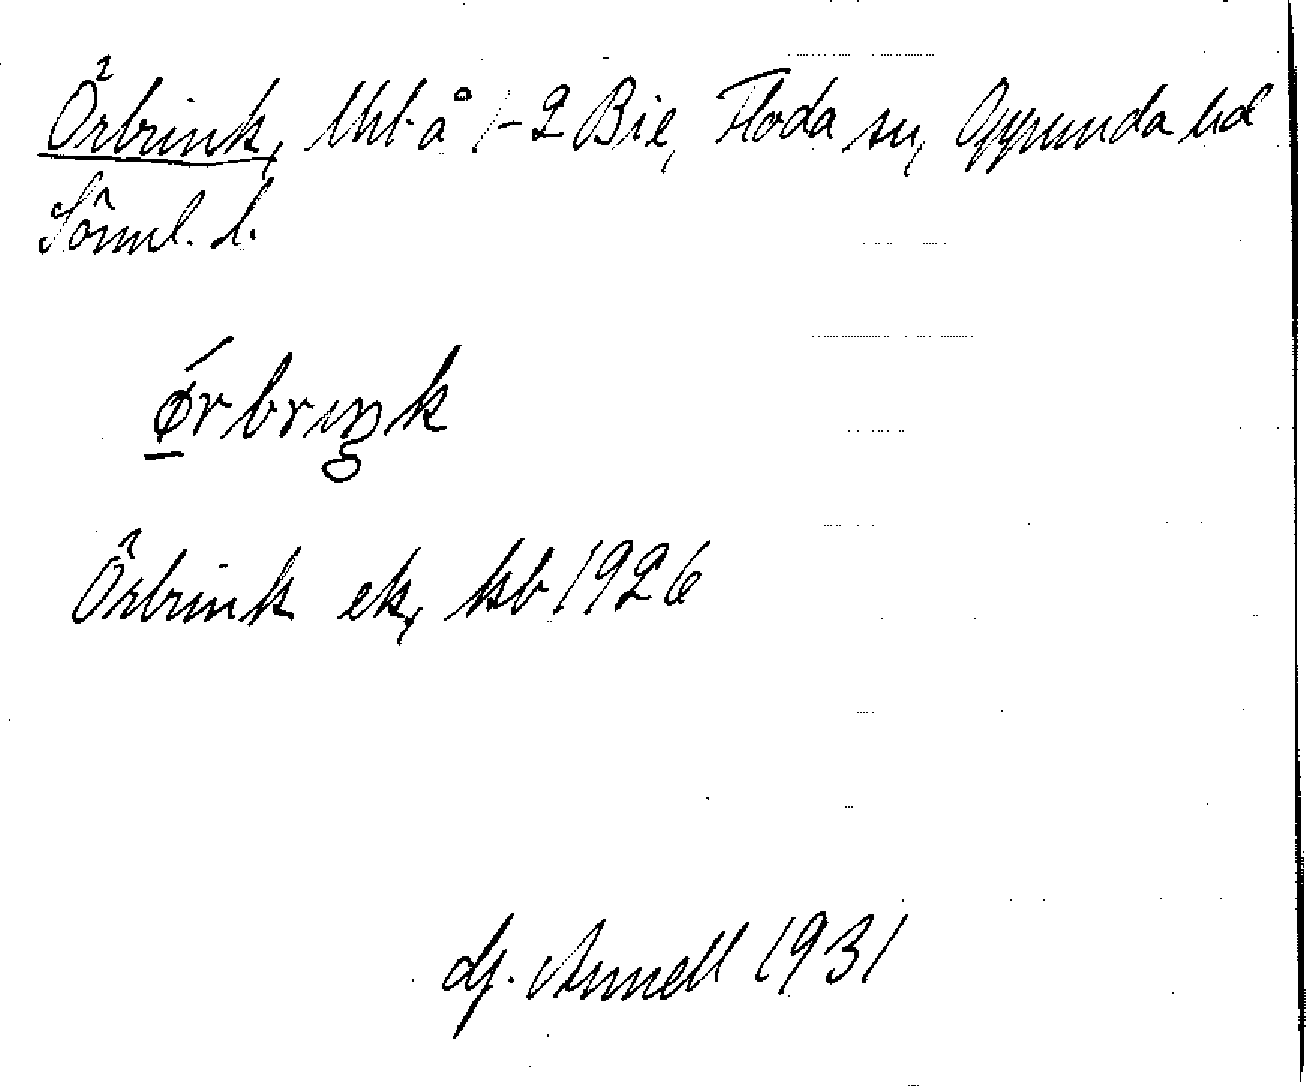 Örbrink, Uht å 1-2 Bie, Floda sn, Oppunda hd
Sörml. l.
ǿrbrıŋk
Örbrink ek, kb 1926
Hj. Annell 1931